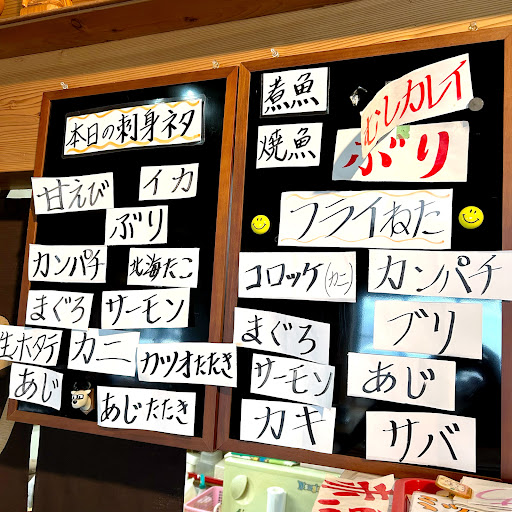 本日の刺身ネタ
甘えび
イカ
ぶり
カンパチ
北海たこ
まぐろ
サーモン
生ホタテ
カニ
カツオたたき
あじ
あじたたき
煮魚
むしカレイ
焼魚
ぶり
フライねた
コロッケ(カニ)
カンパチ
まぐろ
ブリ
サーモン
あじ
カキ
サバ